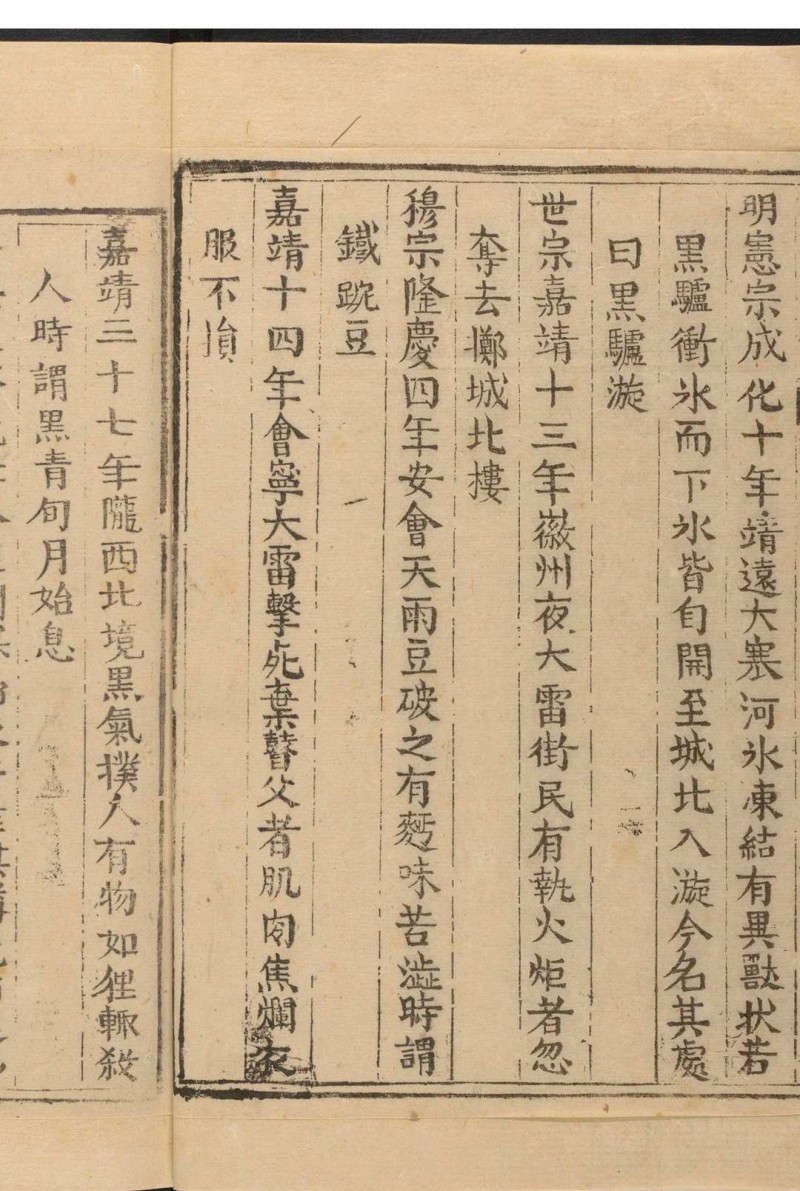 明憲宗成化十年靖遠大寒河氷凍結有異獸狀若
黑驢衝氷而下氷皆自開至城北入漩今名其處
曰黑驢漩
世宗嘉靖十三年徽州夜大雷街民有執火炬者忽
奪去擲城北摟
穆宗隆慶四年安會天雨豆破之有麪味苦澁時謂
鐵豌豆
嘉靖十四年會寧大雷擊死棄瞽父者肌肉焦爛衣
服不損
嘉靖三十七年隴西北境黑氣撲人有物如狸輒殺
人時謂黑青旬月始息